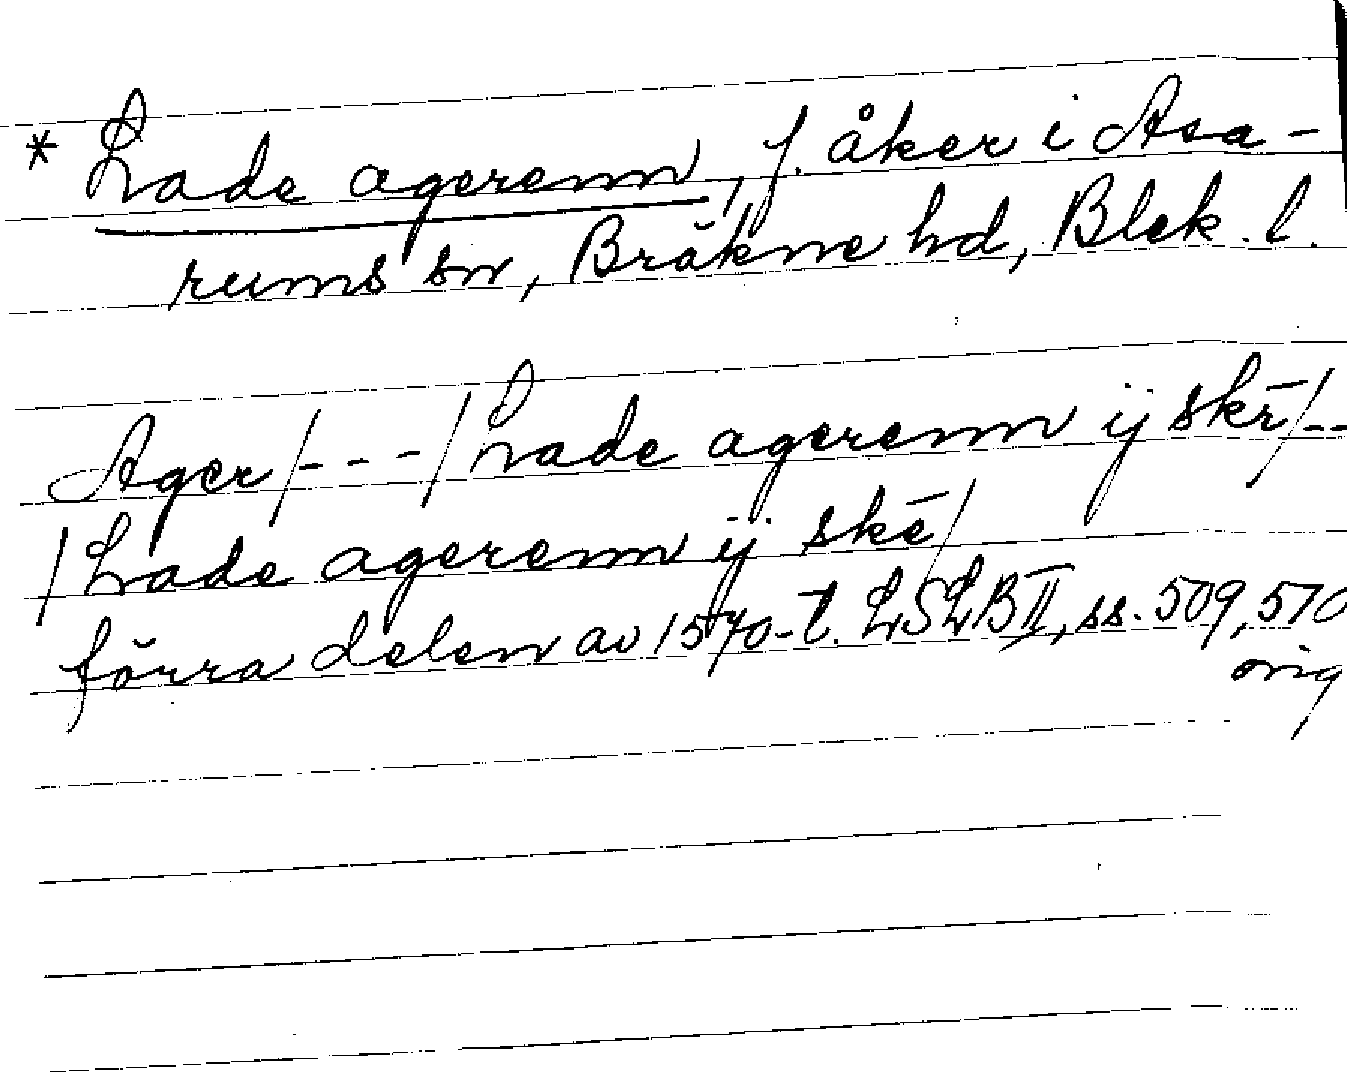 * Lade agerenn, f. åker i Asa-
rums sn, Bräkne hd, Blek. l.
Ager/---/Lade agerenn ij skr̄/--
/Lade agerenn ij skē/
förra delen av 1570-t. LSLB II, ss. 509, 570
orig